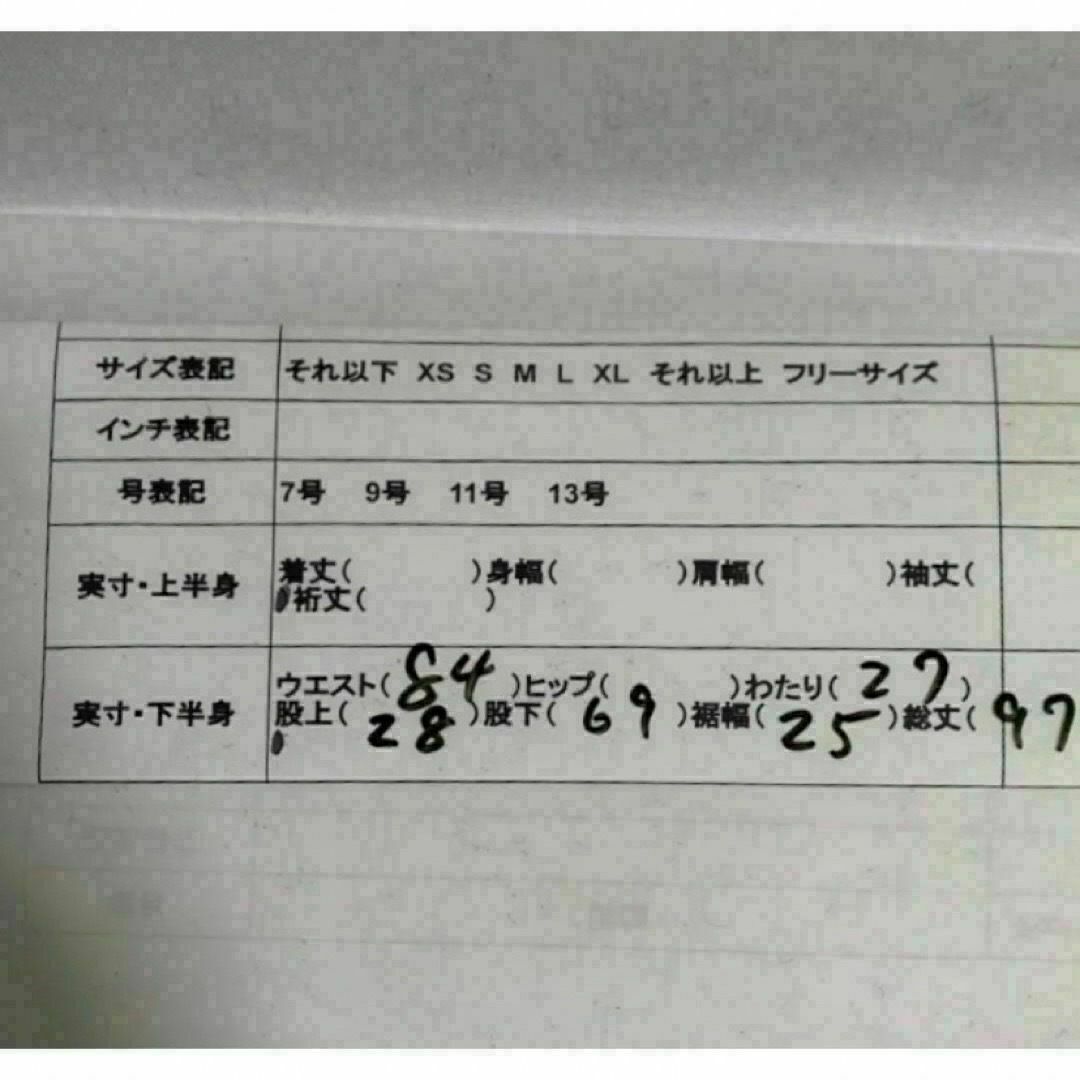 サイズ表記 それ以下 XS S M L XL それ以上 フリーサイズ
インチ表記
号表記 7号 9号 11号 13号
実寸・上半身 着丈( )身幅( )肩幅( )袖丈(
裄丈( )
実寸・下半身 ウエスト( 84 )ヒップ( )わたり( 27 )
股上( 28 )股下( 69 )裾幅( 25 )総丈( 97